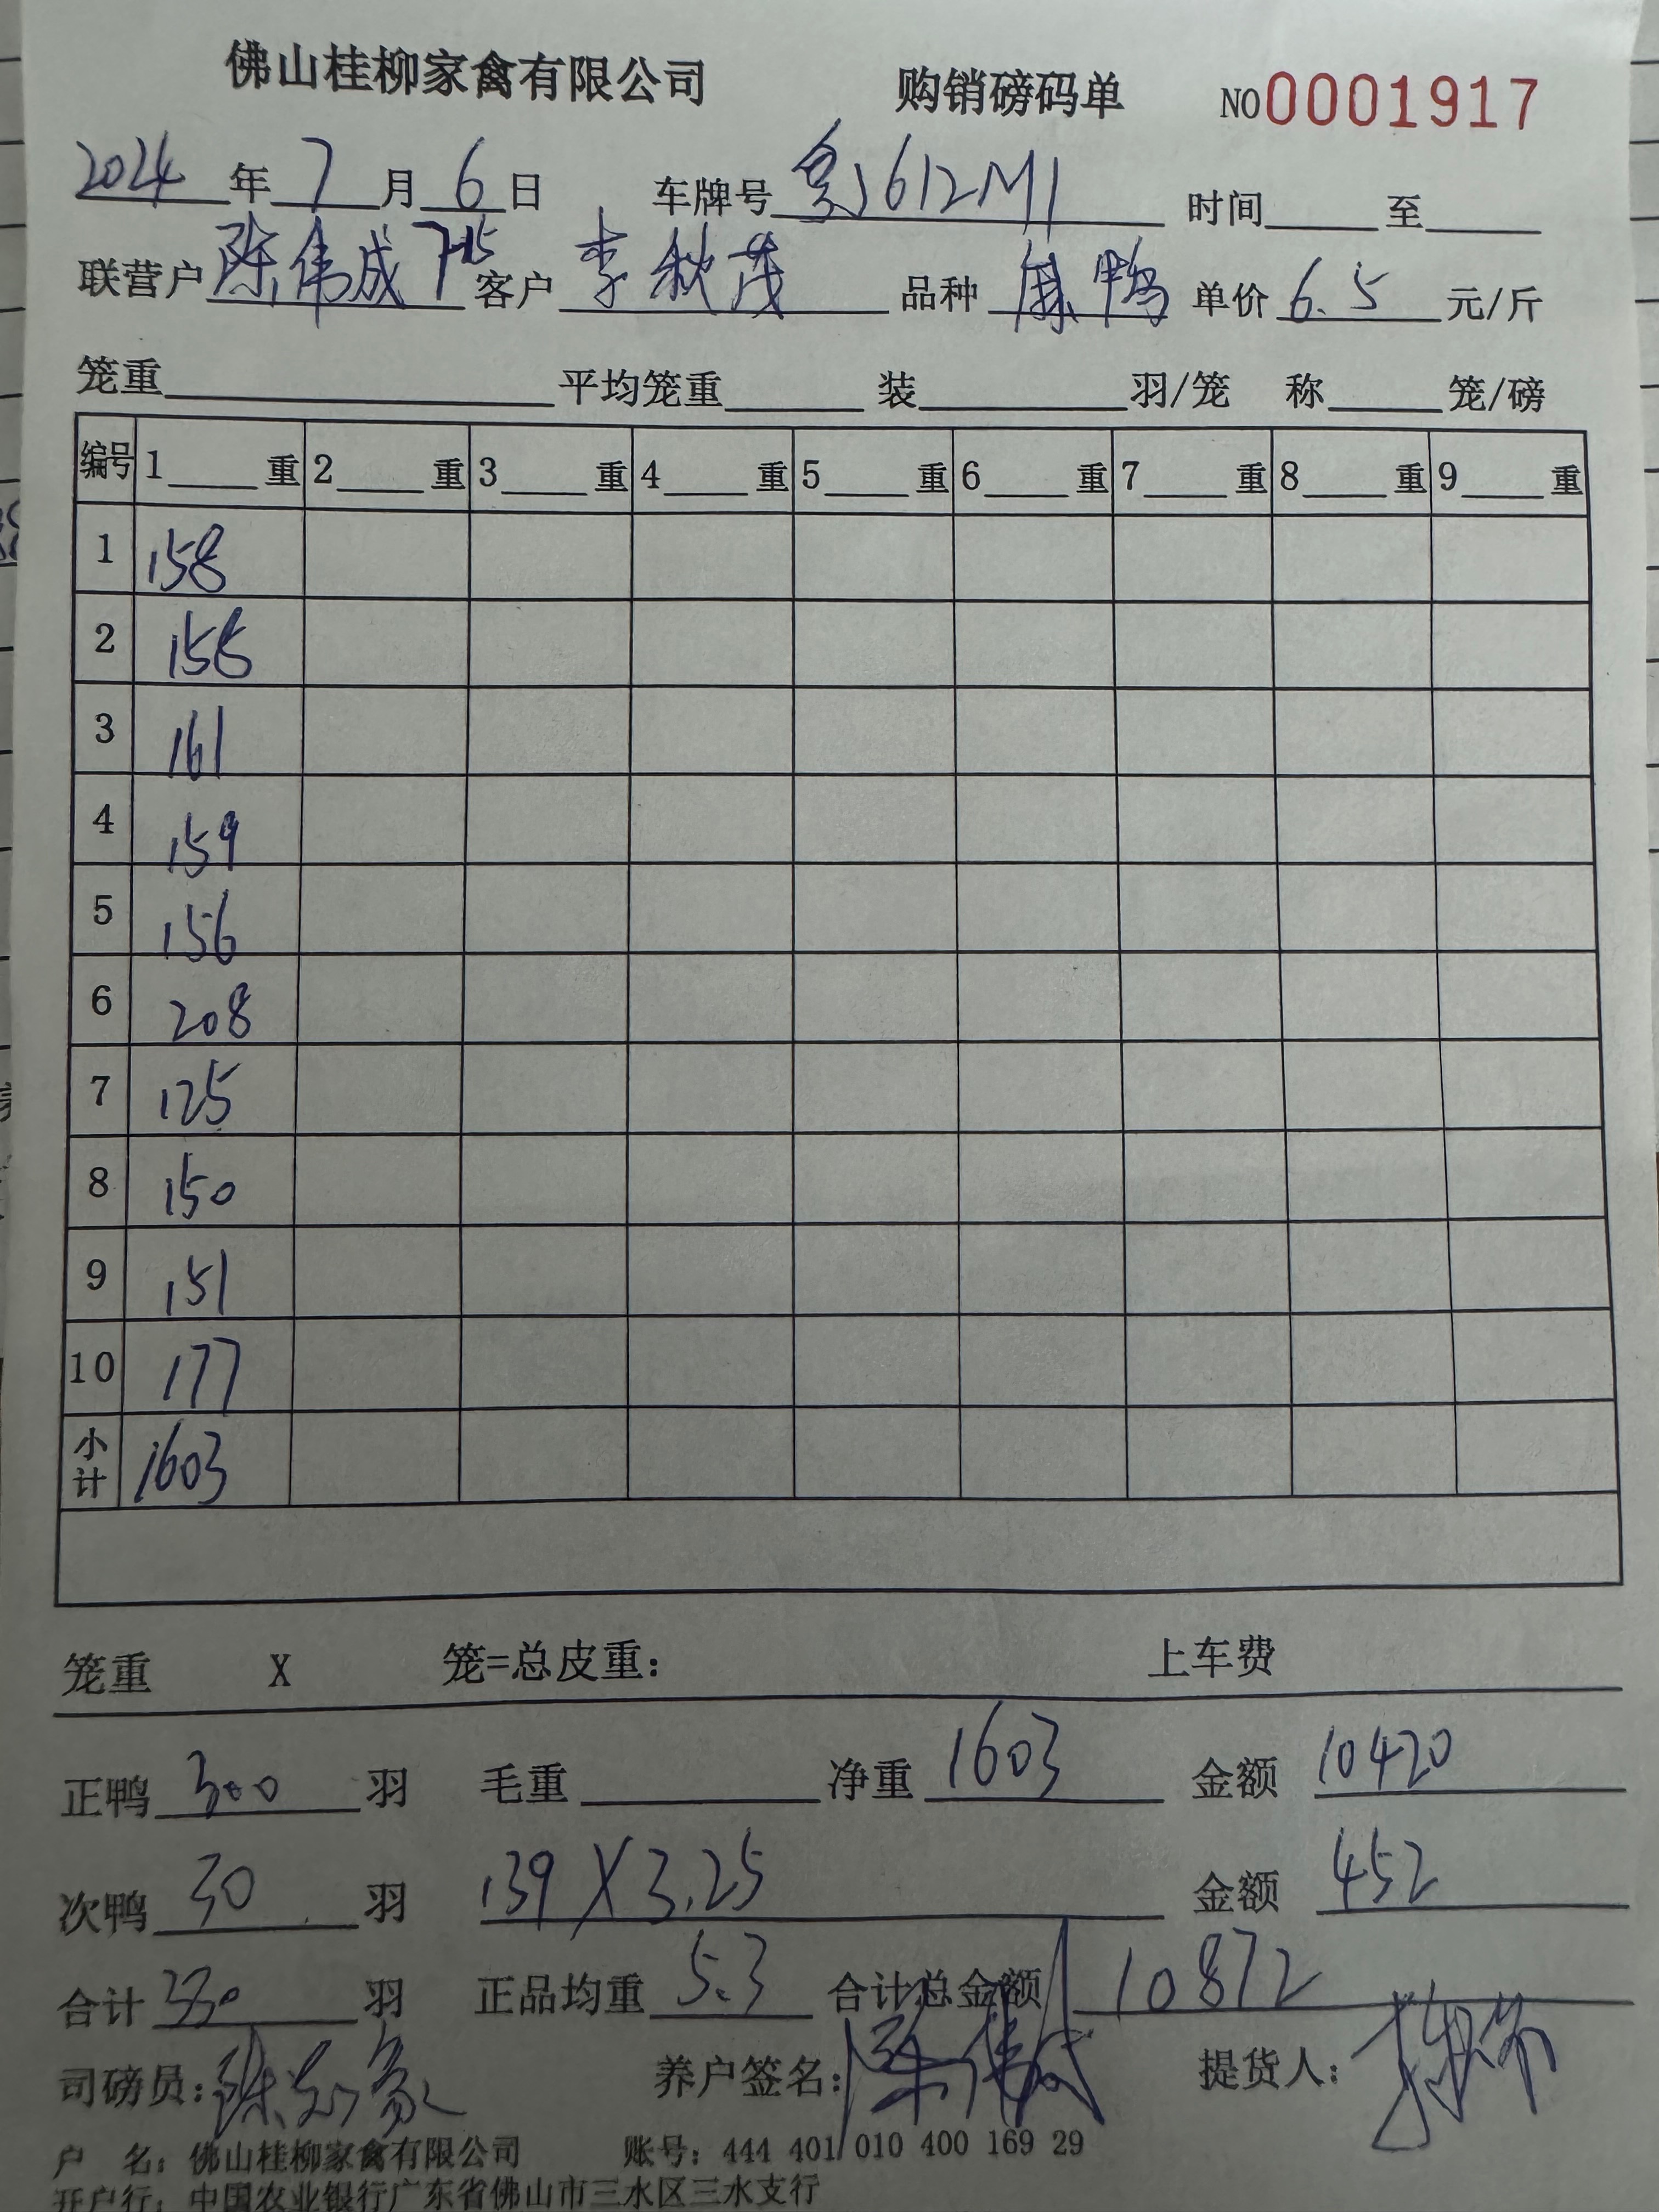 佛山桂柳家禽有限公司 购销磅码单 NO0001917
2024年7月6日 车牌号粤J612M1 时间 至
联营户陈伟成7-15 客户李秋茂 品种麻鸭 单价6.5元/斤
笼重 平均笼重 装 羽/笼 称 笼/磅
编号 1 重 2 重 3 重 4 重 5 重 6 重 7 重 8 重 9 重
1 158
2 155
3 161
4 159
5 156
6 208
7 125
8 150
9 151
10 177
小计 1603
笼重 X 笼=总皮重: 上车费
正鸭300羽 毛重 净重1603 金额10420
次鸭30羽 139X3.25 金额452
合计330羽 正品均重5.3 合计总金额10872
司磅员: 养户签名:陈伟成 提货人:
户 名:佛山桂柳家禽有限公司 账号:444 401 010 400 169 29
开户行:中国农业银行广东省佛山市三水区三水支行